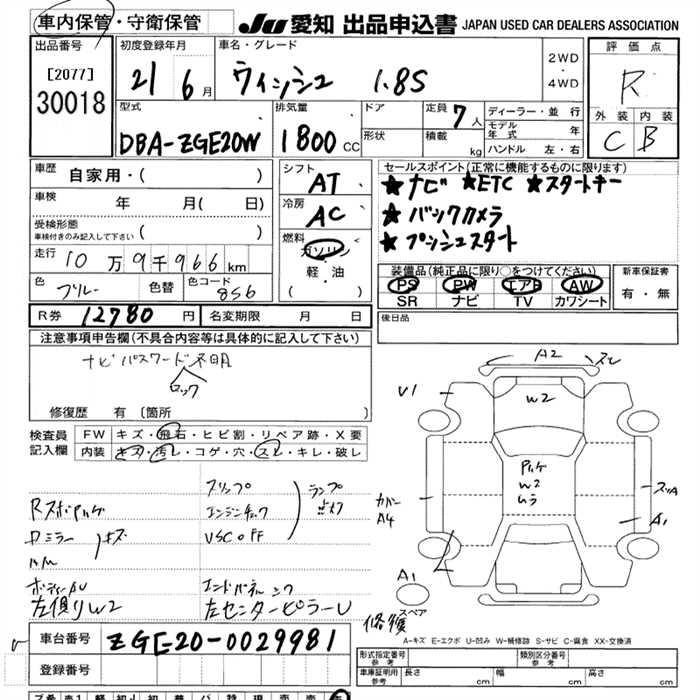 車内保管・守衛保管
JU 愛知 出品申込書 JAPAN USED CAR DEALERS ASSOCIATION
出品番号
[2077]
30018
初度登録年月
21 6月
車名・グレード
ウィッシュ 1.8S
2WD・4WD
評価点
R
外装 内装
C B
型式
DBA-ZGE20W
排気量
1800 CC
ドア
形状
定員 7人
積載 kg
ディーラー・並行
モデル年式 年
ハンドル 左・右
車歴 自家用・( )
車検 年 月( 日)
受検形態
車検付きのみ記入して下さい ( )
走行 10万9千966km
色 ブルー 色替 色コード 8S6
シフト AT
冷房 AC
燃料
ガソリン・軽・油
( )
セールスポイント(正常に機能するものに限ります)
★ナビ ★ETC ★スタートキー
★バックカメラ
★プッシュスタート
装備品(純正品に限り○をつけてください)
PS PW エアB AW
SR ナビ TV カワシート
新車保証書
有・無
R券 12780円 名変期限 月 日
後日品
注意事項申告欄(不具合内容等は具体的に記入して下さい)
ナビパスワード不明
ロック
修復歴 有 〔箇所 〕
検査員記入欄
FW キズ・飛石・ヒビ割・リペア跡・X要
内装 キズ・汚レ・コゲ・穴・スレ・キレ・破レ
スリップ
エンジンチェック
VSC OFF
ランプ点灯
Rスポハゲ
ドミラー キズ
左側リW2
左センターピラーU
A2
スレ
U1
W2
ハゲ
W2
ムラ
カバー
A4
スリA
A1
A1
スペア
修復
A-キズ E-エクボ U-凹み W-補修跡 S-サビ C-腐食 XX-交換済
車台番号 ZGE20-0029981
登録番号
形式指定番号 参考
類別区分番号 参考
車庫証明用 参考 長さ cm 幅 cm 高さ cm